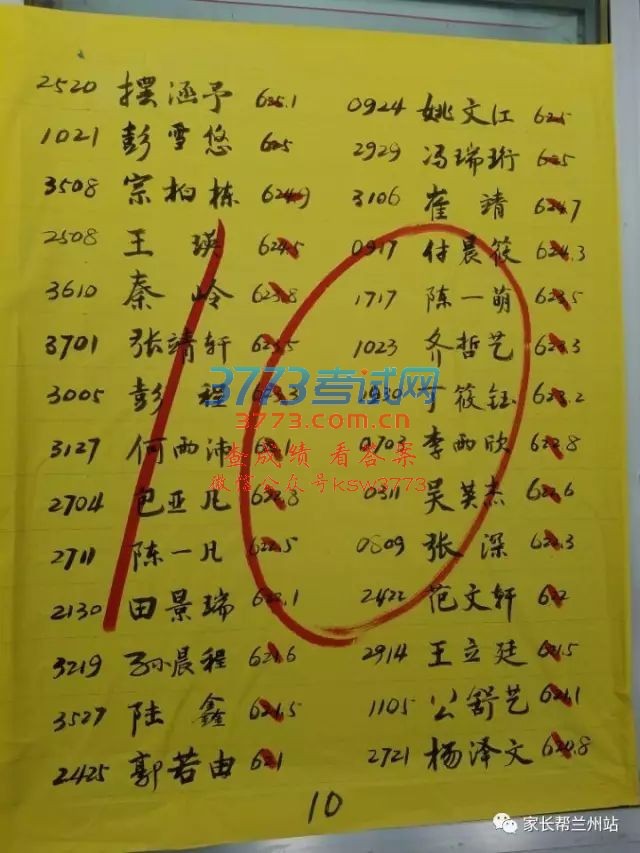 2520 摆涵予 625.1 0924 姚文江 625
1021 彭雪悠 625 2929 冯瑞珩 625
3508 宗柏栋 624.9 3106 崔靖 624.7
2508 王瑛 624.5 0917 付晨筱 624.3
3610 秦岭 623.8 1717 陈一萌 623.5
3701 张靖轩 623.5 1023 齐哲艺 623.3
3005 彭程 623.3 1930 丁筱钰 623.2
3127 何雨沛 0703 李雨欣 622.8
2704 包亚凡 622.8 0311 吴英杰 622.6
2711 陈一凡 622.5 0809 张深 622.3
2130 田景瑞 622.1 2422 范文轩 622
3219 孙晨程 621.6 2914 王立廷 621.5
3527 陆鑫 621.5 1105 公舒艺 621.1
2425 郭若由 621 2721 杨泽文 620.8
10
10
3773考试网
3773.com.cn
查成绩 看答案
微信公众号ksw3773
家长帮兰州站